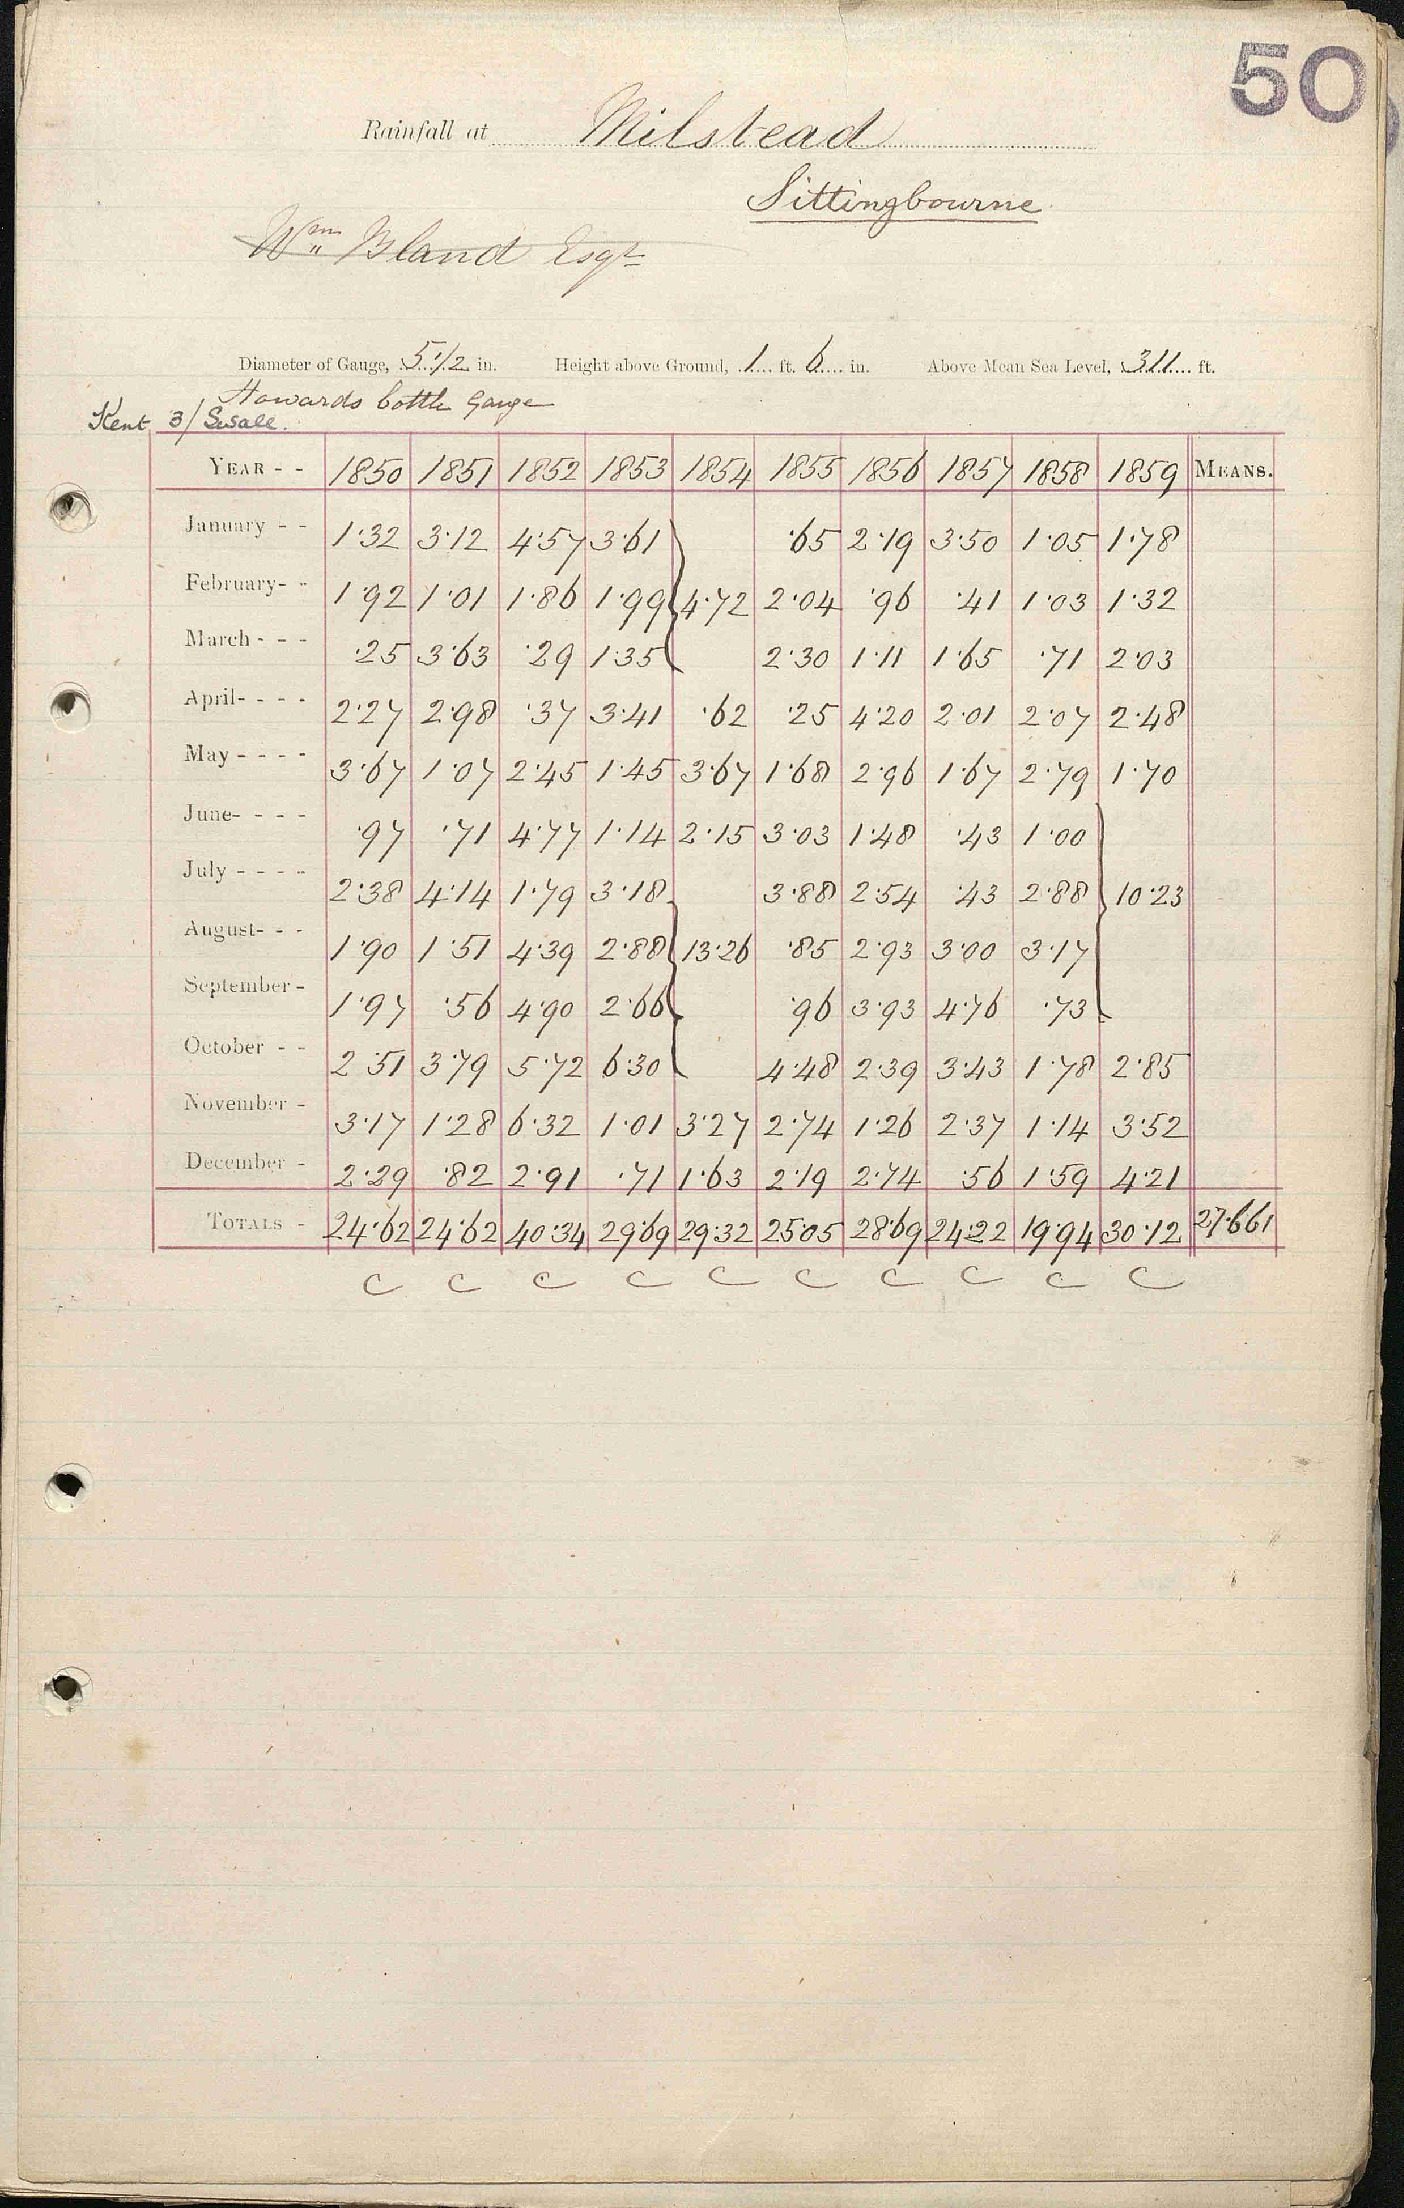 50
Rainfall at Milstead
Sittingbourne
Wm Bland Esqr
Diameter of Gauge, 5 1/2 in. Height above Ground, 1 ft. 6 in. Above Mean Sea Level, 311 ft.
Howards bottle Gauge
Kent 3/ Swale.
YEAR - - 1850 1851 1852 1853 1854 1855 1856 1857 1858 1859 MEANS.
January - - 1·32 3·12 4·57 3·61 ·65 2·19 3·50 1·05 1·78
February - - 1·92 1·01 1·86 1·99 4·72 2·04 ·96 ·41 1·03 1·32
March - - - ·25 3·63 ·29 1·35 2·30 1·11 1·65 ·71 2·03
April - - - - 2·27 2·98 ·37 3·41 ·62 ·25 4·20 2·01 2·07 2·48
May - - - - 3·67 1·07 2·45 1·45 3·67 1·68 2·96 1·67 2·79 1·70
June - - - - ·97 ·71 4·77 1·14 2·15 3·03 1·48 ·43 1·00
July - - - - 2·38 4·14 1·79 3·18 3·88 2·54 ·43 2·88 10·23
August - - - 1·90 1·51 4·39 2·88 13·26 ·85 2·93 3·00 3·17
September - 1·97 ·56 4·90 2·66 ·96 3·93 4·76 ·73
October - - 2·51 3·79 5·72 6·30 4·48 2·39 3·43 1·78 2·85
November - 3·17 1·28 6·32 1·01 3·27 2·74 1·26 2·37 1·14 3·52
December - 2·29 ·82 2·91 ·71 1·63 2·19 2·74 ·56 1·59 4·21
TOTALS - 24·62 24·62 40·34 29·69 29·32 25·05 28·69 24·22 19·94 30·12 27·661
C C C C C C C C C C